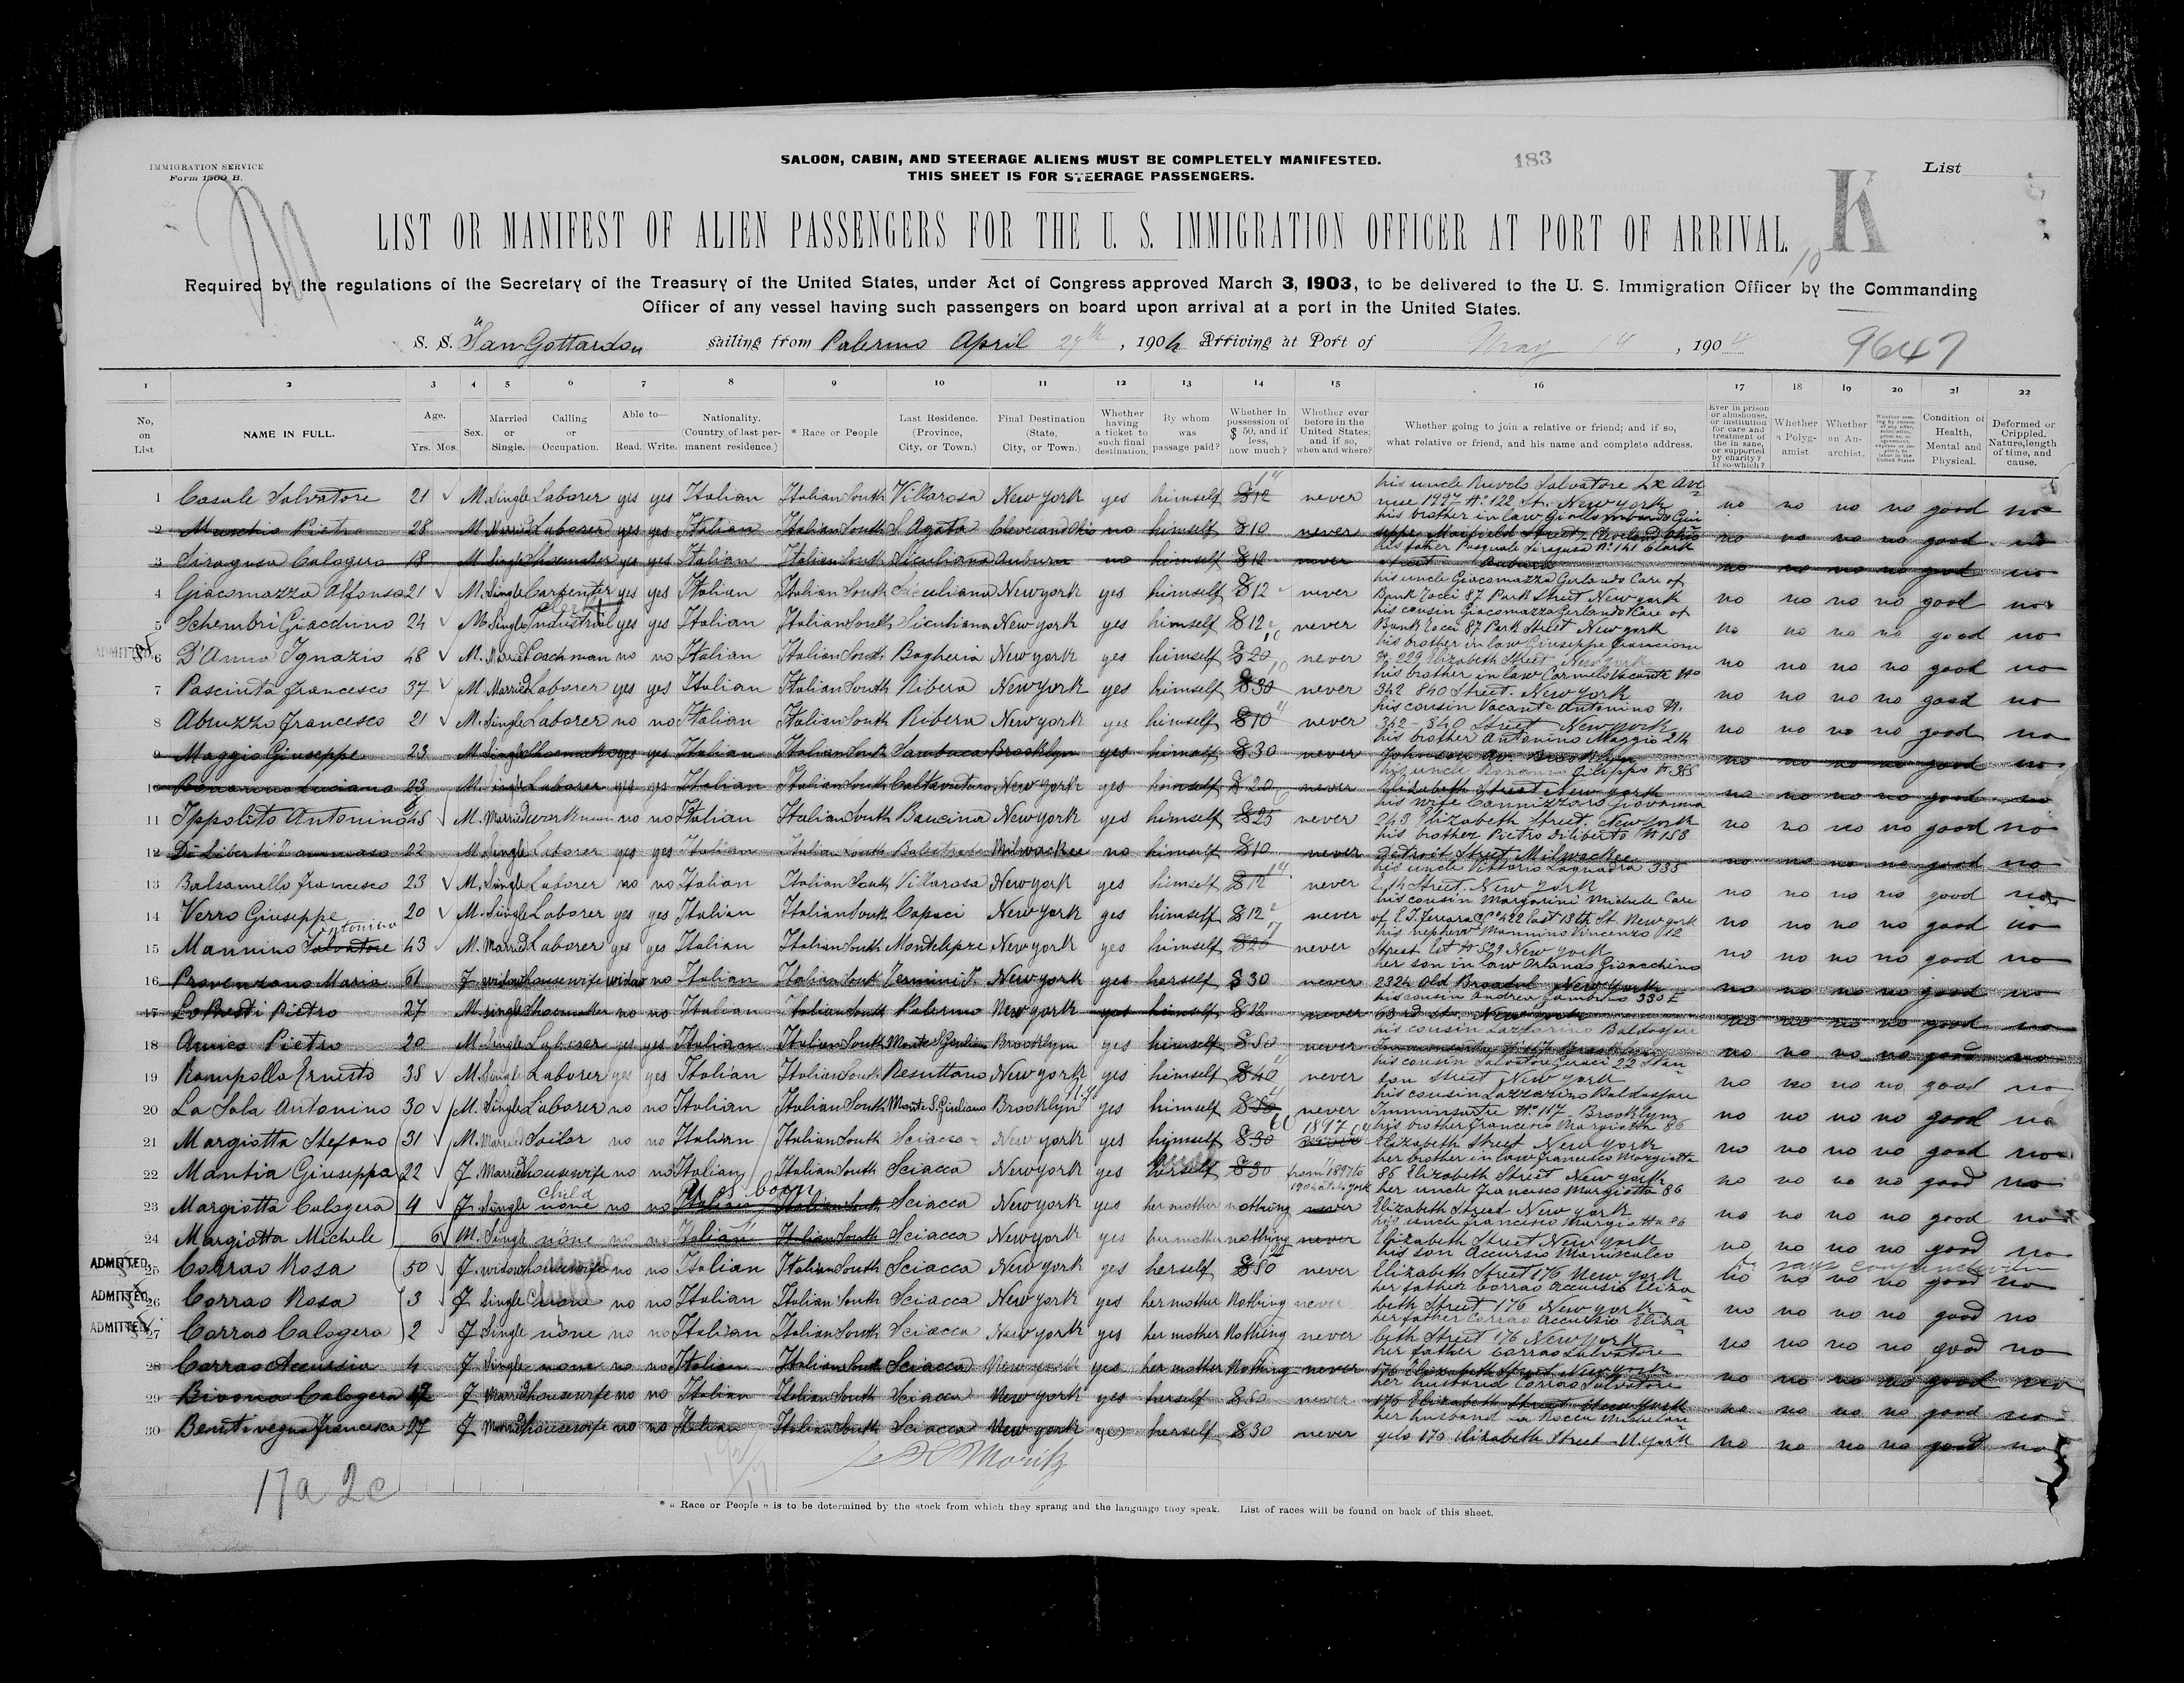 IMMIGRATION SERVICE
Form 1500 B.
SALOON, CABIN, AND STEERAGE ALIENS MUST BE COMPLETELY MANIFESTED.
THIS SHEET IS FOR STEERAGE PASSENGERS.
183
K
List
LIST OR MANIFEST OF ALIEN PASSENGERS FOR THE U. S. IMMIGRATION OFFICER AT PORT OF ARRIVAL.
10
Required by the regulations of the Secretary of the Treasury of the United States, under Act of Congress approved March 3, 1903, to be delivered to the U. S. Immigration Officer by the Commanding
Officer of any vessel having such passengers on board upon arrival at a port in the United States.
S. S. "San Gottardo" sailing from Palermo April 29th, 1904 Arriving at Port of May 14, 1904 9647
1 2 3 4 5 6 7 8 9 10 11 12 13 14 15 16 17 18 19 20 21 22
No. on List
NAME IN FULL.
Age. Yrs. Mos.
Sex.
Married or Single.
Calling or Occupation.
Able to— Read. Write.
Nationality. (Country of last permanent residence.)
* Race or People
Last Residence. (Province, City, or Town.)
Final Destination (State, City, or Town.)
Whether having a ticket to such final destination.
By whom was passage paid?
Whether in possession of $ 50, and if less, how much?
Whether ever before in the United States; and if so, when and where?
Whether going to join a relative or friend; and if so, what relative or friend, and his name and complete address.
Ever in prison or almshouse, or institution for care and treatment of the in sane, or supported by charity? If so-which?
Whether a Polygamist.
Whether an Anarchist.
Condition of Health, Mental and Physical.
Deformed or Crippled. Nature, length of time, and cause.
1 Casale Salvatore 21 M. Single Laborer yes yes Italian Italian South Villarosa New York yes himself $12 never his uncle Salvatore no no no no good no
2 Pietro 28 M. Married Laborer yes yes Italian Italian South S. Agata Cleveland Ohio no himself $10 never no no no no good no
3 Siragusa Calogero 18 M Single Shoemaker yes yes Italian Italian South Siculiana Auburn no himself $12 never his father Pasquale Siragusa No 141 Clark Street Auburn no no no no good no
4 Giacomazzo Alfonso 21 M. Single Carpenter yes yes Italian Italian South Siculiana New York yes himself $12 never his uncle Giacomazzo Gerlando Care of Bank 87 Park Street New York no no no no good no
5 Schembri Giacchino 24 M Single Industrial yes yes Italian Italian South Siculiana New York yes himself $12 never his cousin Giacomazzo Gerlando Care of Bank 87 Park Street New York no no no no good no
ADMITTED 6 D'Anna Ignazio 48 M. Married Coachman no no Italian Italian South Bagheria New York yes himself $20 never his brother in law Giuseppe 229 Elizabeth Street New York no no no no good no
7 Pasciuta Francesco 37 M Married Laborer yes yes Italian Italian South Ribera New York yes himself $30 never his brother in law Carmelo Vacante No 342 Street. New York no no no no good no
8 Abruzzo Francesco 21 M. Single Laborer no no Italian Italian South Ribera New York yes himself $10 never his cousin Vacante Antonino N. 342 Street New York no no no no good no
9 Maggio Giuseppe 23 M. Single Shoemaker yes yes Italian Italian South Sambuca Brooklyn yes himself $30 never his brother Antonino Maggio 214 Johnson Av. Brooklyn no no no no good no
10 Luciano 23 M. Single Laborer yes yes Italian Italian South Caltavuturo New York yes himself $20 never his uncle Filippo N 355 Elizabeth Street New York no no no no good no
11 Ippolito Antonino 45 M. Married workman no no Italian Italian South Baucina New York yes himself $25 never his wife Cannizzaro Giovanna 243 Elizabeth Street. New York no no no no good no
12 Di Liberti Tommaso 22 M. Single Laborer yes yes Italian Italian South Milwaukee no himself $10 never his brother Pietro Diliberto N 158 Detroit Street Milwaukee no no no no good no
13 Balsamello Francesco 23 M. Single Laborer no no Italian Italian South Villarosa New York yes himself $12 never his uncle Vittorio 335 Street. New York no no no no good no
14 Verro Giuseppe 20 M. Single Laborer yes yes Italian Italian South Capaci New York yes himself $12 never his cousin Michele Care of 422 East 13th St. New York no no no no good no
15 Mannino Salvatore Antonino 43 M. Married Laborer yes yes Italian Italian South Montelepre New York yes himself $20 7 never his nephew Mannino Vincenzo 112 Street New York no no no no good no
16 Provenzano Maria 61 F widow housewife no Italian Italian South Termini New York yes herself $30 never her son in law Orlando Gioacchino 2324 Old New York no no no no good no
17 Pietro 27 M single Shoemaker no no Italian Italian South Palermo New York yes himself $12 never his cousin Andrea Gambino 330 E 63rd St. New York no no no no good no
18 Pietro 20 M. Single Laborer yes yes Italian Italian South Monte S. Giuliano Brooklyn yes himself $50 never his cousin Lazzarino Baldassare Brooklyn no no no no good no
19 Rampolla Ernesto 38 M. Single Laborer yes yes Italian Italian South Resuttano New York yes himself $40 never his cousin Salvatore Geraci 22 Stanton Street New York no no no no good no
20 La Sala Antonino 30 M. Single Laborer no no Italian Italian South Monte S. Giuliano Brooklyn yes himself $50 never his cousin Lazzarino Baldassare No 117 Brooklyn no no no no good no
21 Margiotta Stefano 31 M. Married Sailor no no Italian Italian South Sciacca New York yes himself $30 1897 never his brother Francesco Margiotta 86 Elizabeth Street New York no no no no good no
22 Mantia Giuseppa 22 F Married housewife no no Italian Italian South Sciacca New York yes herself $30 from 1897 to her brother in law Francesco Margiotta 86 Elizabeth Street New York no no no no good no
U. S. born
23 Margiotta Calogera 4 F Single none child no no Italian Italian South Sciacca New York yes her mother nothing never her uncle Francesco Margiotta 86 Elizabeth Street New York no no no no good no
24 Margiotta Michele 6 M. Single none no no Italian Italian South Sciacca New York yes her mother nothing never his uncle Francesco Margiotta 86 Elizabeth Street New York no no no no good no
ADMITTED 25 Corrao Rosa 50 F. widow housewife no no Italian Italian South Sciacca New York yes herself $50 never his son Accursio Maniscalco Elizabeth Street 176 New York no no no no good no
ADMITTED 26 Corrao Rosa 3 F Single none child no no Italian Italian South Sciacca New York yes her mother Nothing never her father Corrao Accursio Elizabeth Street 176 New York no no no no good no
ADMITTED 27 Corrao Calogera 2 F Single none no no Italian Italian South Sciacca New York yes her mother Nothing never her father Corrao Accursio Elizabeth Street 176 New York no no no no good no
28 Corrao Accursia 4 F Single none no no Italian Italian South Sciacca New York yes her mother Nothing never her father Corrao Salvatore 176 Elizabeth Street New York no no no no good no
29 Bivona Calogera F Married housewife no no Italian Italian South Sciacca New York yes herself $60 never her husband Corrao Salvatore 176 Elizabeth Street New York no no no no good no
30 Bentivegna Francesca 27 F Married housewife no no Italian Italian South Sciacca New York yes herself $30 never her husband La Rocca Michelangelo 176 Elizabeth Street N. York no no no no good no
17a 2c
Moritz
* « Race or People » is to be determined by the stock from which they sprang and the language they speak. List of races will be found on back of this sheet.